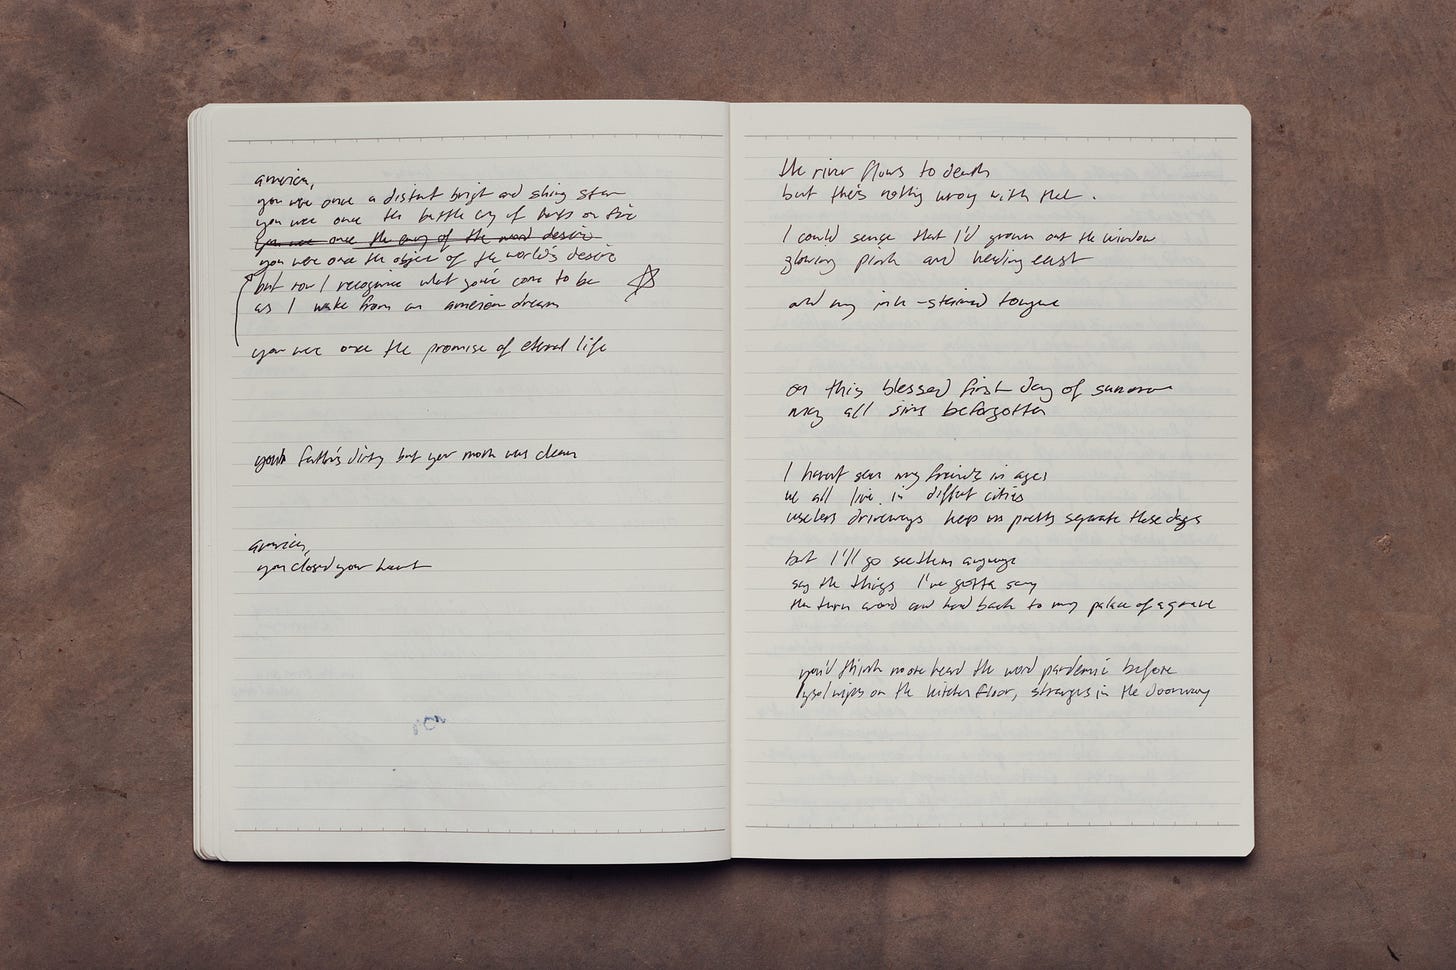 america,
you were once a distant bright and shining star
you were once the battle cry of hearts on fire
you were once the envy of the word desire
you were once the object of the world's desire
but now I recognize what you've come to be
as I wake from an american dream
you were once the promise of eternal life
your father's dirty but your mom was clean
america,
you closed your heart
the river flows to death
but there's nothing wrong with that.
I could sense that I'd grown out the window
glowing pink and heading east
and my ink-stained tongue
on this blessed first day of summer
may all sins be forgotten
I havent seen my friends in ages
we all live in different cities
useless driveways keep us pretty separate these days
but I'll go see them anyways
say the things I've gotta say
then turn around and head back to my palace of a grave
you'd think no one heard the word pandemic before
lysol wipes on the kitchen floor, strangers in the doorway